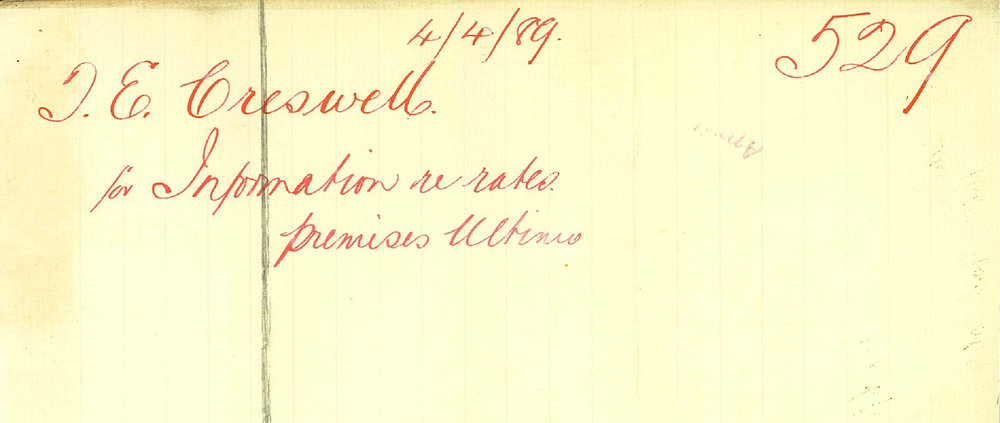 4/4/89.
529
T. E. Creswell.
for Information re rates
premises Ultimo